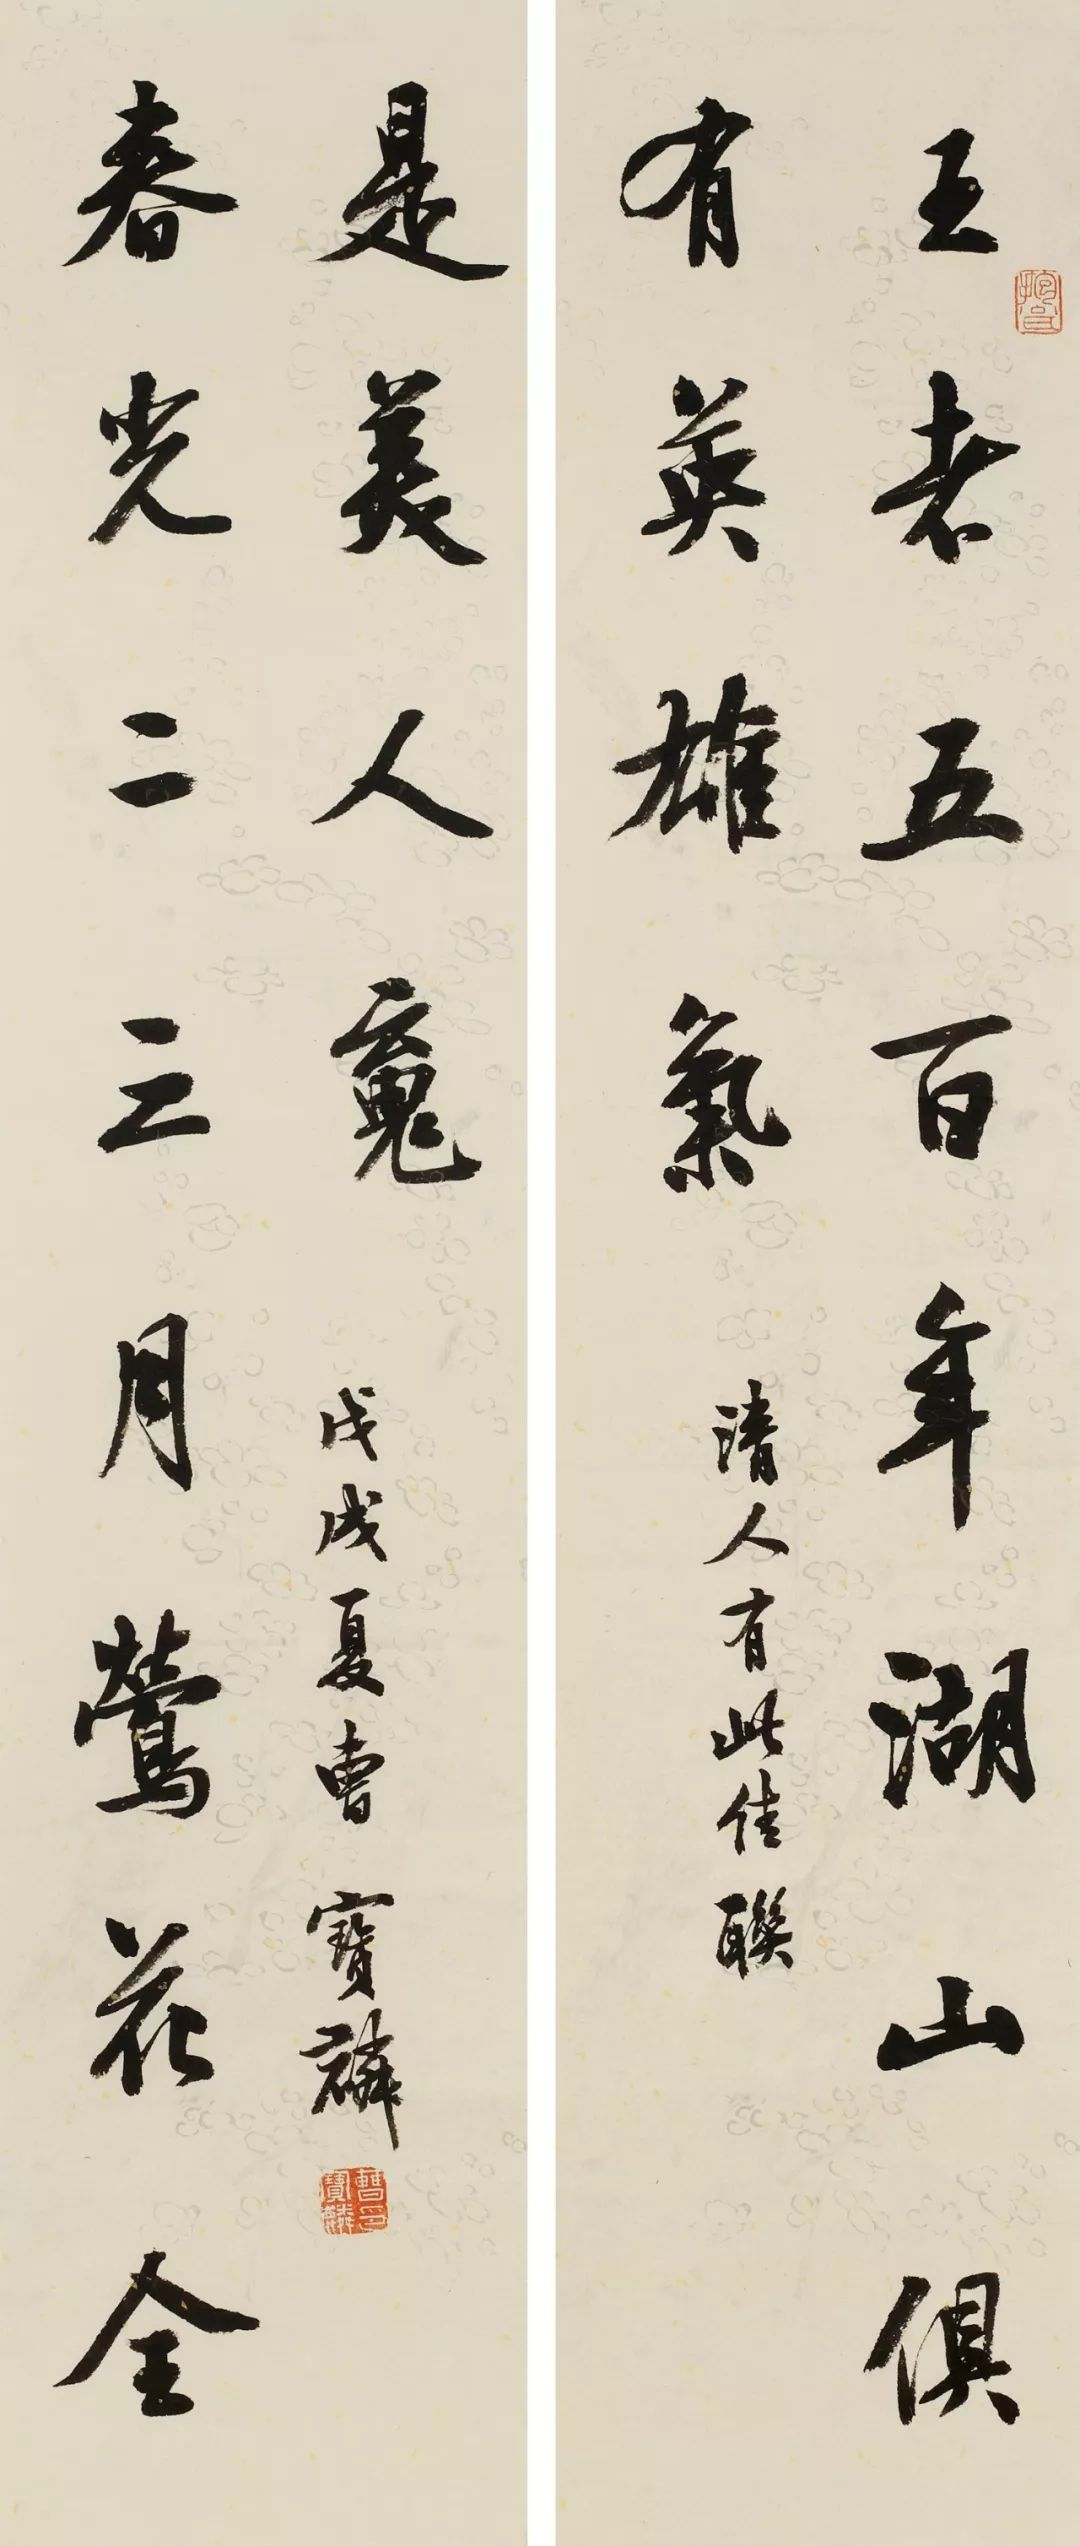 王者五百年湖山俱
有英雄氣
清人有此佳聯
春光二三月鶯花全
是美人魂
戊戌夏曹寶麟
曹寶麟印